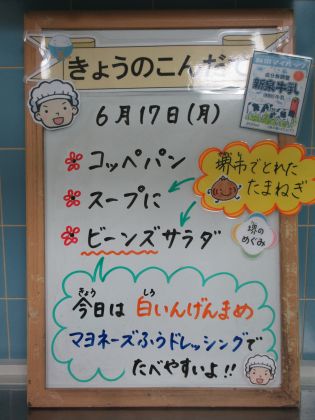 きょうのこんだて
6月17日(月)
新泉牛乳
コッペパン
堺市でとれた
たまねぎ
スープに
ビーンズサラダ
堺の
めぐみ
きょう しろ
今日は 白いんげんまめ
マヨネーズふうドレッシングで
たべやすいよ!!